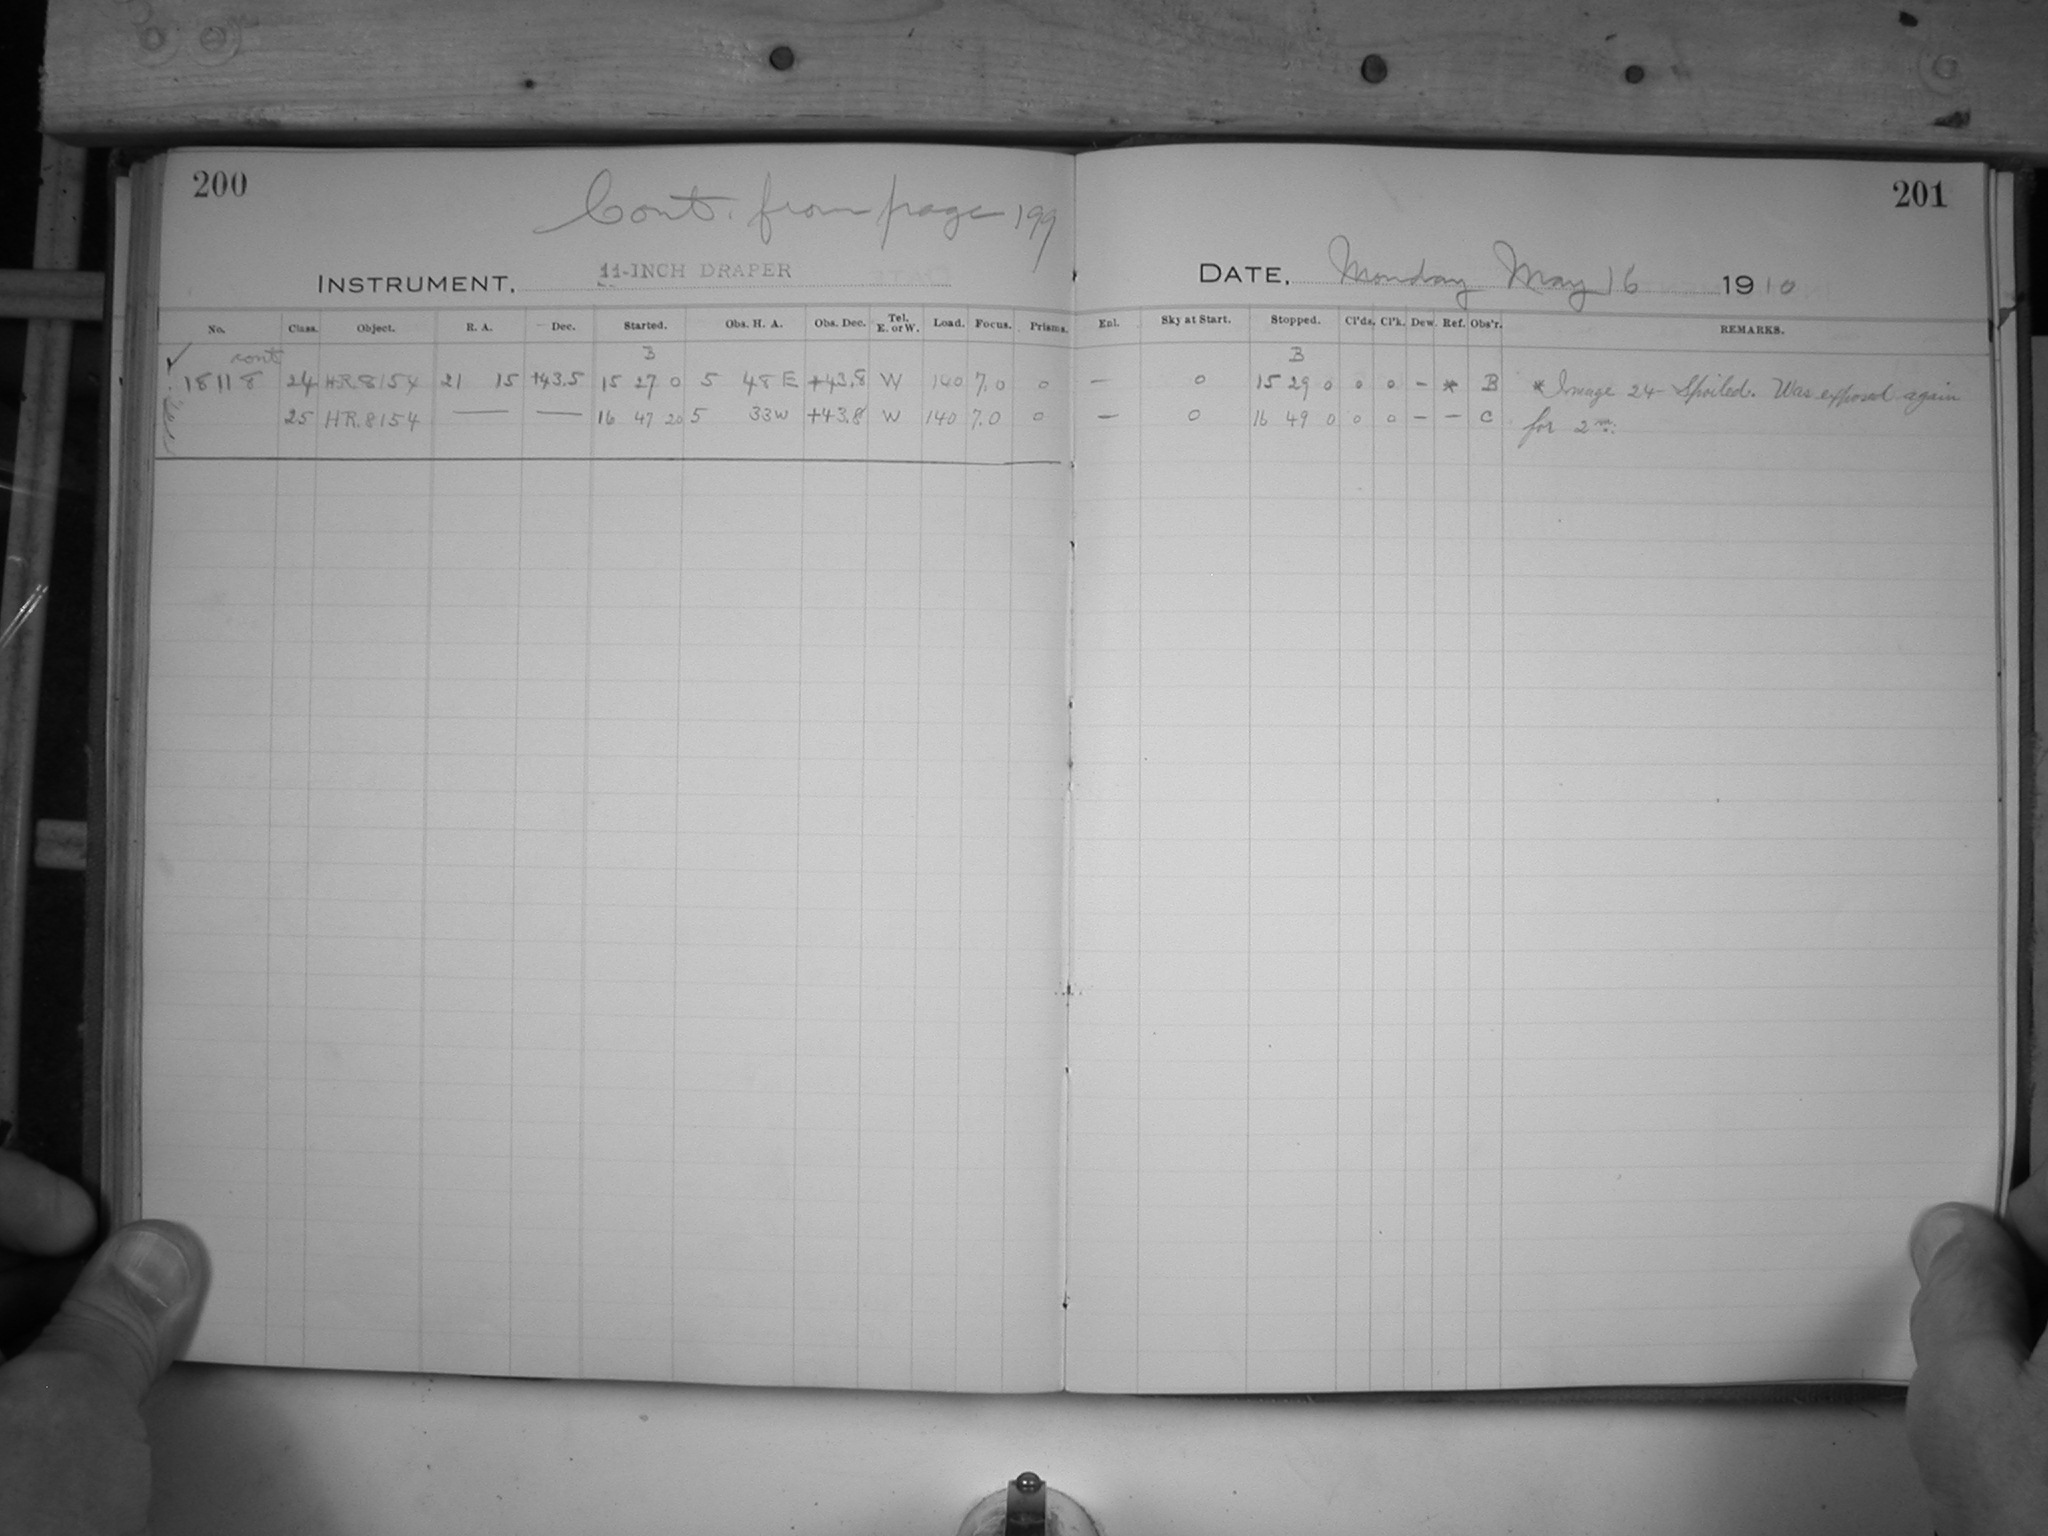 200
Cont. from page 199
INSTRUMENT. 11-INCH DRAPER
No. Class. Object. R. A. Dec. Started. Obs. H. A. Obs. Dec. Tel. E. or W. Load. Focus. Prisms.
cont B
18118 24 H.R. 8154 21 15 +43.5 15 27 0 5 48 E +43.8 W 140 7.0 0
25 H.R. 8154 — — 16 47 20 5 33 W +43.8 W 140 7.0 0
201
DATE. Monday May 16 1910
Enl. Sky at Start. Stopped. Cl'ds. Cl'k. Dew. Ref. Obs'r. REMARKS.
B
— 0 15 29 0 0 0 – * B * Image 24 – Spoiled. Was exposed again
— 0 16 49 0 0 0 – – C for 2 m.